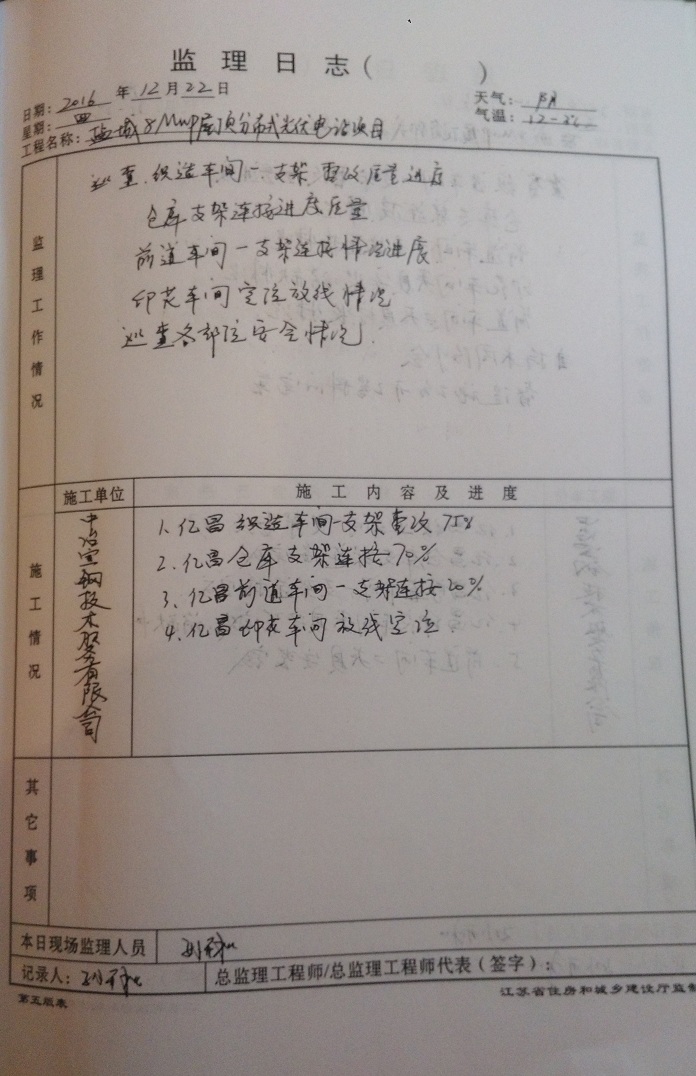 监理日志( )
日期: 2016 年 12 月 22 日
天气: 阴
星期: 四
气温: 12-2
工程名称: 盐城8Mwp屋顶分布式光伏电站项目
监理工作情况
巡查.织造车间一支架整改质量进度
仓库支架连接进度质量
前道车间一支架连接情况进展
印花车间定位放线情况
巡查各部位安全情况.
施工单位
施工内容及进度
施工情况
中冶宝钢技术服务有限公司
1.亿昌织造车间一支架整改75%
2.亿昌仓库支架连接70%
3.亿昌前道车间一支架连接20%
4.亿昌印花车间放线定位
其它事项
本日现场监理人员
记录人:
总监理工程师/总监理工程师代表(签字):
第五版表
江苏省住房和城乡建设厅监制